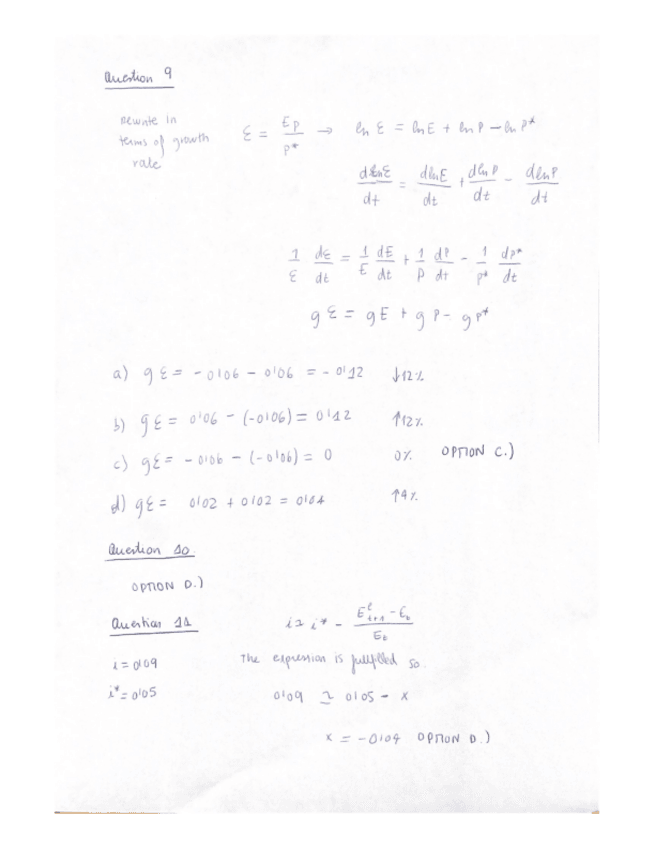 Question 9
Rewrite in terms of growth rate
ε = EP / P* → ln ε = ln E + ln P − ln P*
d ln ε / dt = d ln E / dt + d ln P / dt − d ln P / dt
1/ε dε/dt = 1/E dE/dt + 1/P dP/dt − 1/P* dP*/dt
g ε = g E + g P − g P*
a) g ε = - 0'06 - 0'06 = - 0'12 ↓12%
b) g ε = 0'06 - (-0'06) = 0'12 ↑12%
c) g ε = - 0'06 - (-0'06) = 0 0% OPTION C.)
d) g ε = 0'02 + 0'02 = 0'04 ↑4%
Question 10
OPTION D.)
Question 11
i ≃ i* − (E^e_{t+1} − E_t) / E_t
i = 0'09
The expression is fullfilled so
i* = 0'05
0'09 ≃ 0'05 - x
x = -0'04 OPTION D.)